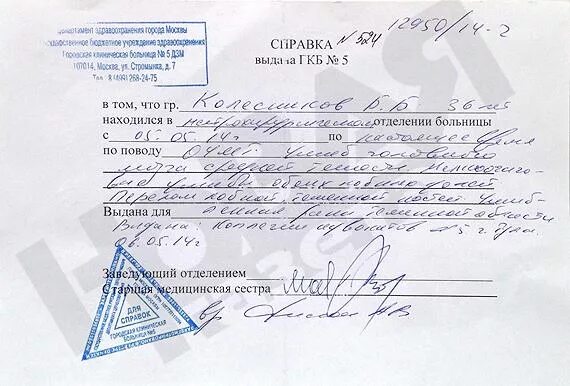 12950/14-2
Департамент здравоохранения города Москвы
Государственное бюджетное учреждение здравоохранения
Городская клиническая больница № 5 ДЗМ
107014, Москва, ул. Стромынка, д. 7
Тел. 8(499)268-24-75
СПРАВКА № 524
выдана ГКБ № 5
в том, что гр. Колесников Б.Б 36 лет
находился в нейрохирургическом отделении больницы
с 05.05.14г по настоящее время
по поводу ОЧМТ. Ушиб головного
мозга средней тяжести.
ушибы обоих лобных долей
Перелом лобной, теменной костей. Ушиб-
Выдана для ленная рана теменной области
Выдана: Коллегии адвокатов №5 г. Тулы.
06.05.14г
Заведующий отделением
Старшая медицинская сестра
ДЛЯ
СПРАВОК
ГОРОДСКАЯ КЛИНИЧЕСКАЯ
БОЛЬНИЦА №5
вр